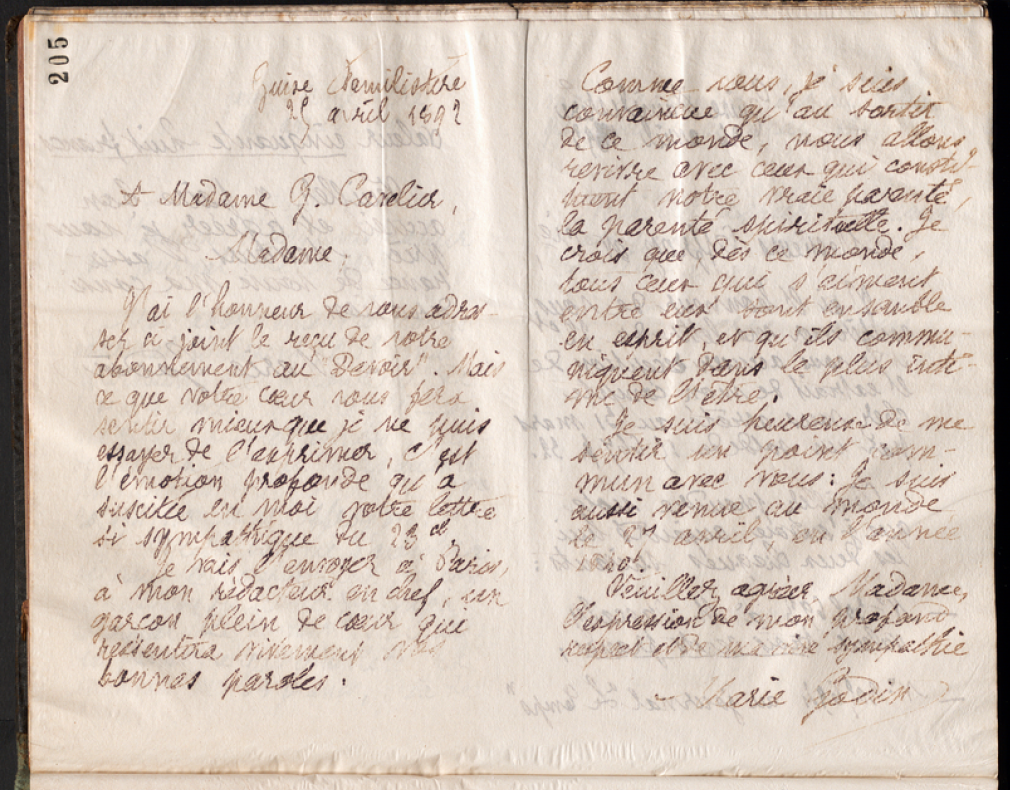 205
Guise Familistère
25 avril 1892
A Madame G. Cavelier,
Madame,
J'ai l'honneur de vous adres-
ser ci-joint le reçu de votre
abonnement au "Devoir". Mais
ce que votre cœur vous fera
sentir mieux que je ne puis
essayer de l'exprimer, c'est
l'émotion profonde qu'a
suscitée en moi votre lettre
si sympathique du 23 ct
Je vais l'envoyer à Paris,
à mon rédacteur en chef, un
garçon plein de cœur qui
ressentira vivement vos
bonnes paroles.
Comme vous, je suis
convaincue qu'au sortir
de ce monde, nous allons
revivre avec ceux qui consti-
tuent notre vraie parenté,
la parenté spirituelle. Je
crois que dès ce monde,
tous ceux qui s'aiment
entre eux sont ensemble
en esprit, et qu'ils commu-
niquent dans le plus inti-
me de l'être.
Je suis heureuse de me
sentir un point com-
mun avec vous: Je suis
aussi venue au monde
le 27 avril en l'année
Veuillez agréer, Madame,
l'expression de mon profond
respect et de ma vive sympathie
Marie Godin